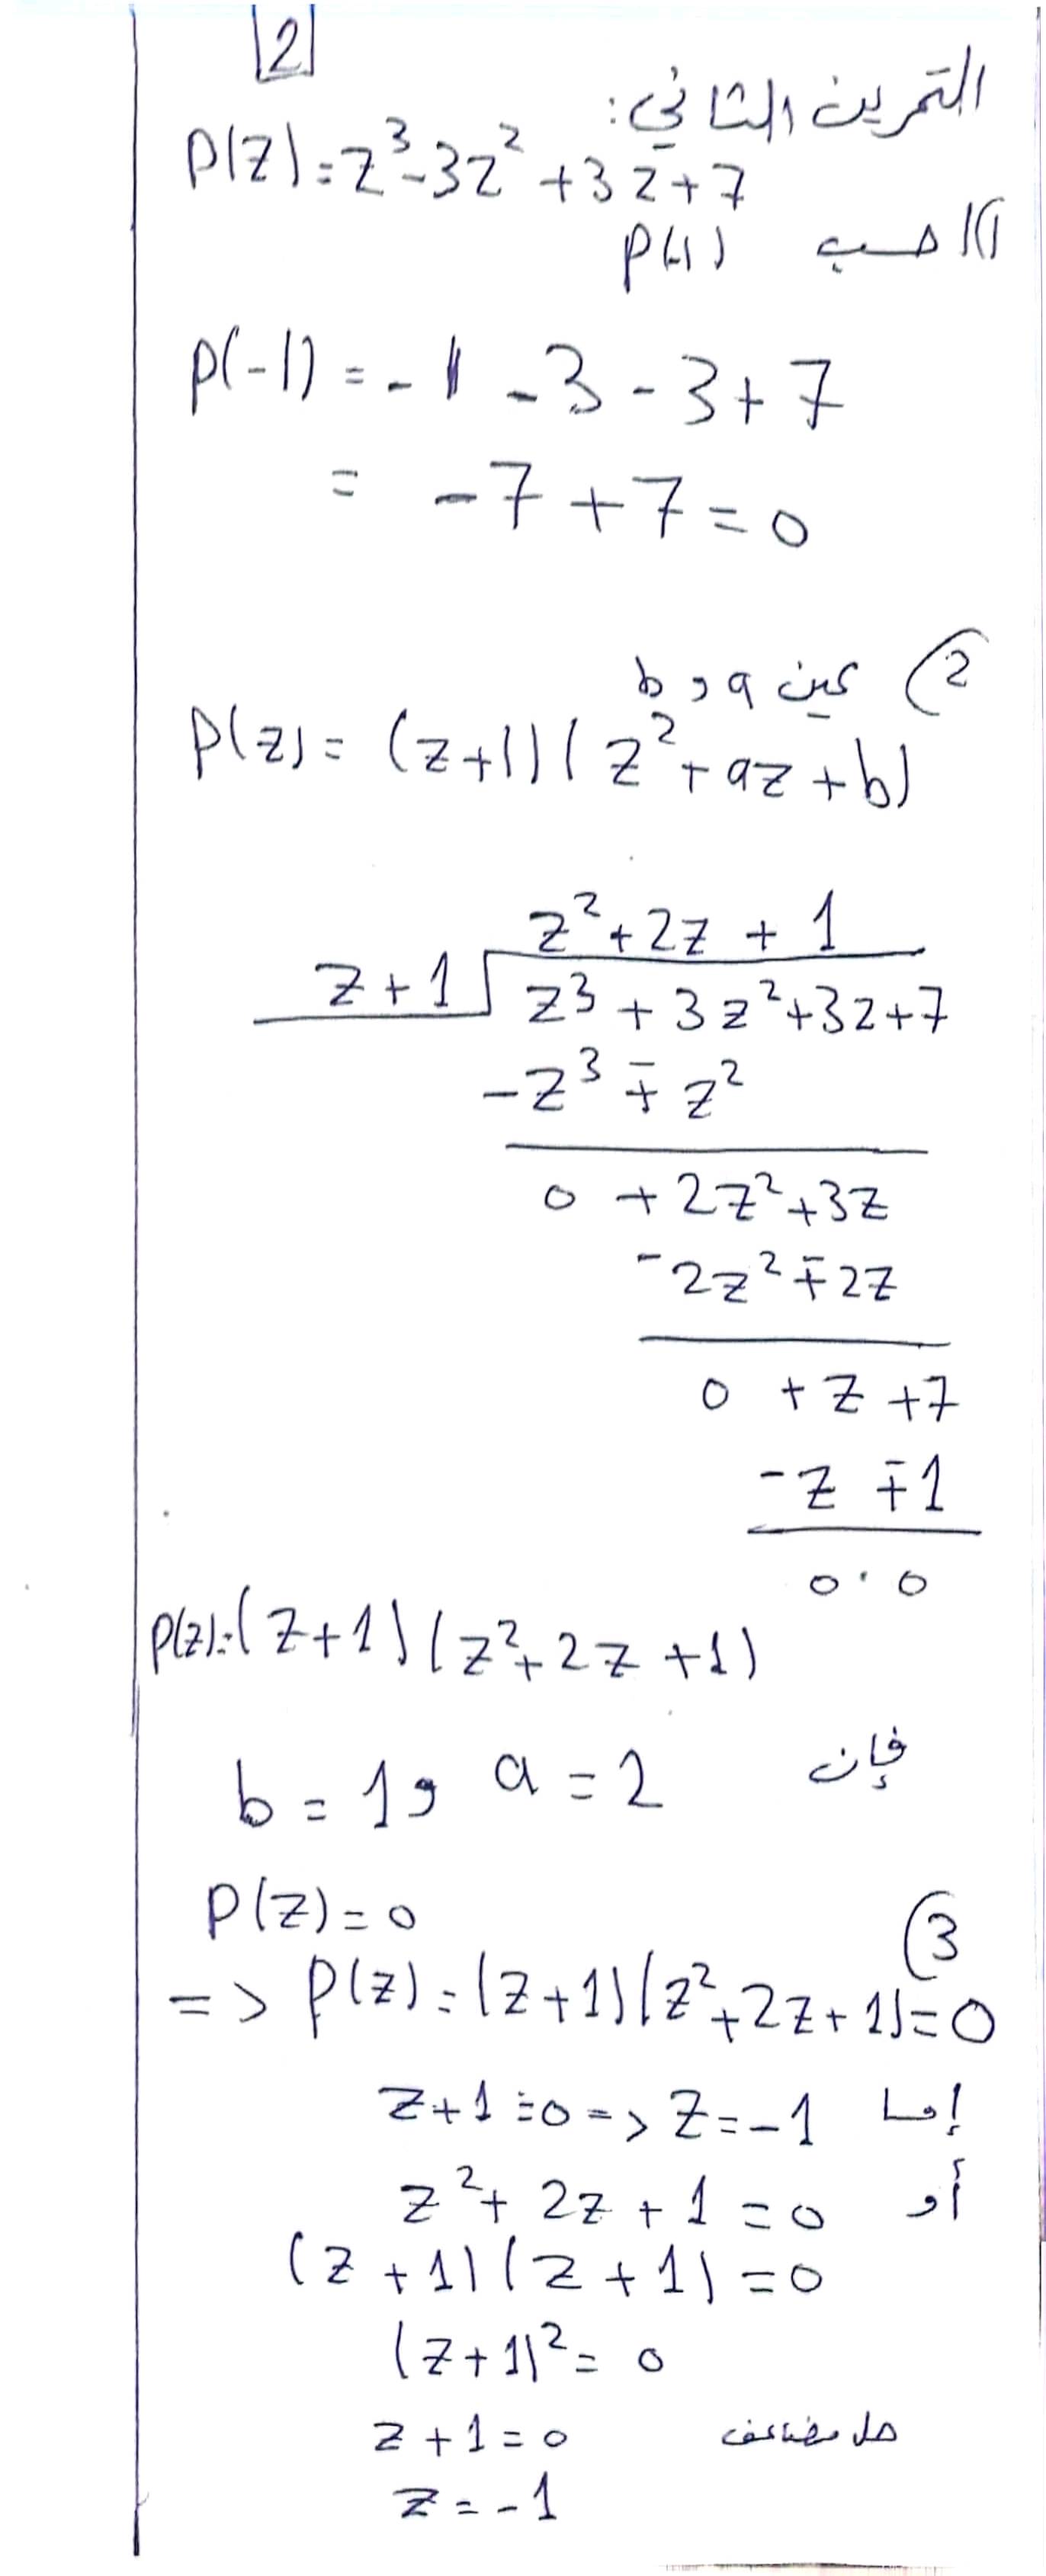 2
التمرين الثاني:
P(Z)=Z³-3Z²+3Z+7
1) احسب P(-1)
P(-1) = -1 -3 -3+7
= -7+7=0
2) عين a و b
P(z)= (z+1)(z²+az+b)
z²+2z + 1
z+1 z³+3z²+3z+7
-z³ ∓ z²
0 +2z²+3z
-2z²∓2z
0 +z +7
-z ∓1
0 0
P(z)=(z+1)(z²+2z+1)
فإن a=2 و b=1
3) P(Z)=0
=> P(z)=(z+1)(z²+2z+1)=0
إما z+1=0 => z=-1
أو z²+2z+1=0
(z+1)(z+1)=0
(z+1)²=0
z+1=0 حل مضاعف
z=-1